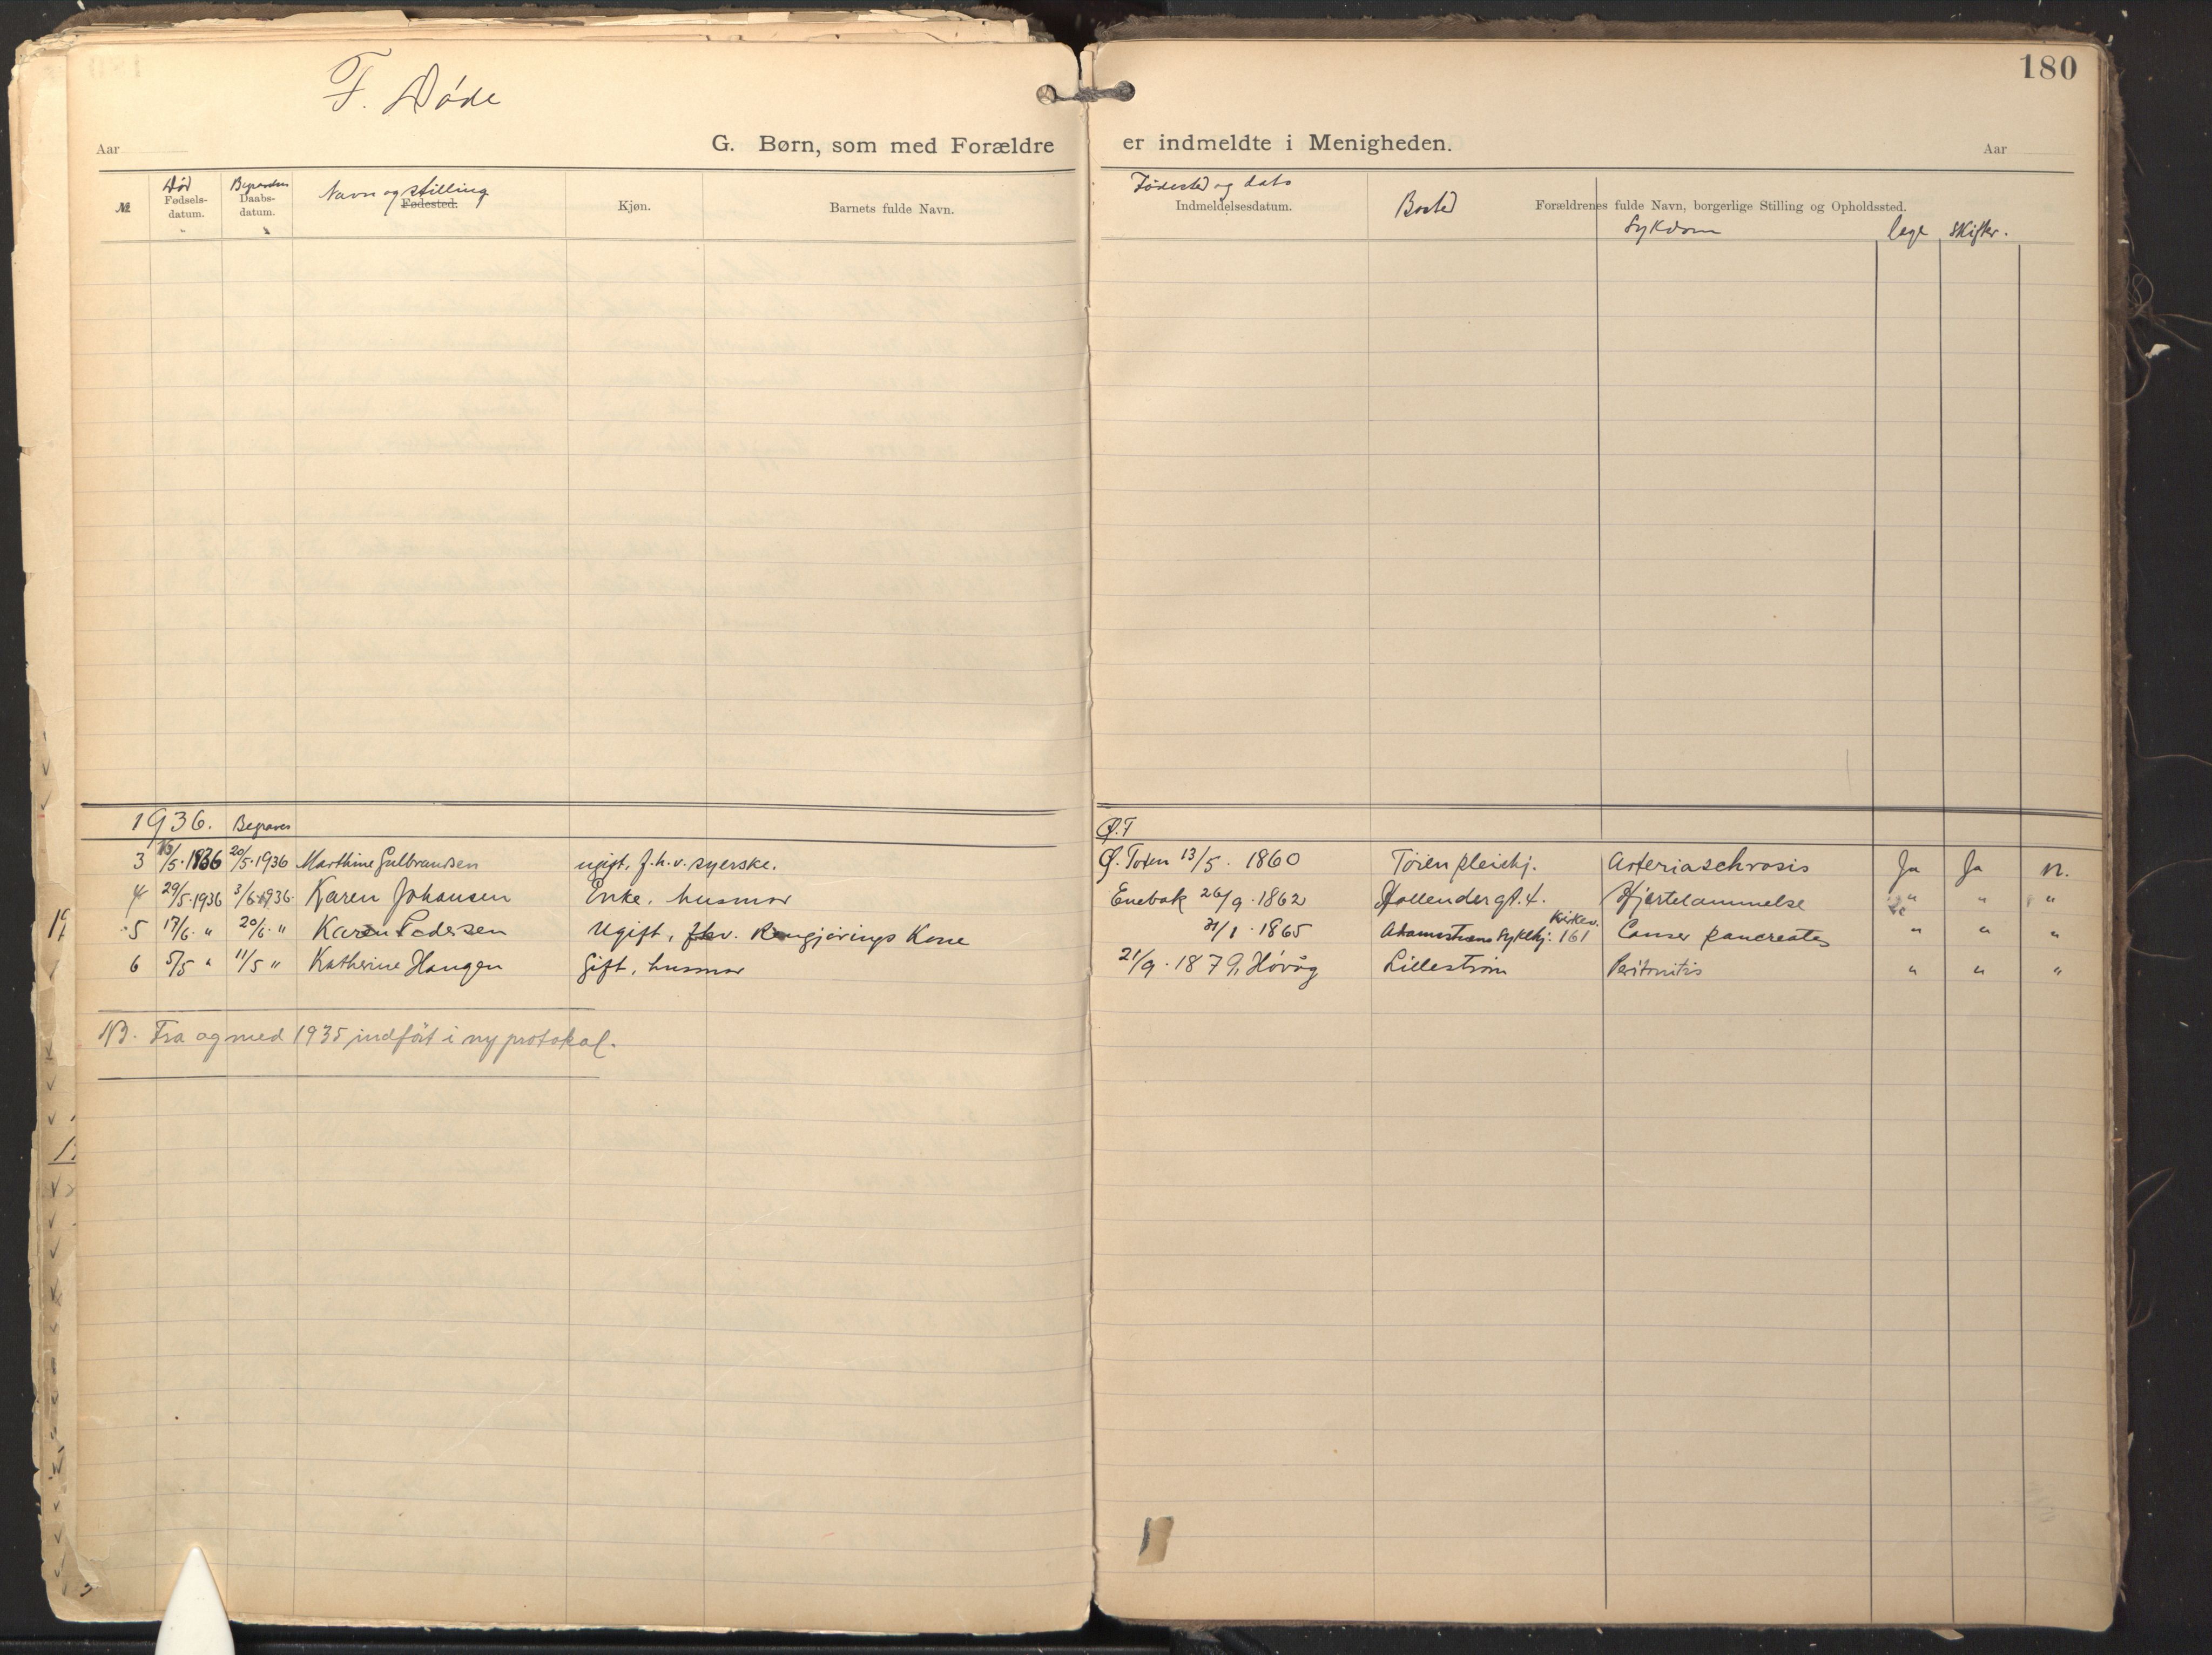 180
F. Døde
Aar G. Børn, som med Forældre er indmeldte i Menigheden. Aar
№ Død Fødselsdatum. Begravelses Daabsdatum. Navn og stilling Fødested. Kjøn. Barnets fulde Navn. Fødested og dato Indmeldelsesdatum. Bosted Forældrenes fulde Navn, borgerlige Stilling og Opholdssted. Sykdom lege skifter.
1936. Begraves Ø.T
3 13/5 · 1936 20/5 · 1936 Marthine Gulbrandsen ugigt, f.h.v. syerske. Ø. Toten 13/5 · 1860 Töien pleiehj. Arteriaschrosis Ja Ja n.
4 29/5 · 1936 3/6 · 1936 · Karen Johansen Enke, husmor Enebak 26/9 · 1862 Hollendergt. 4. Hjertelammelse " " "
5 17/6 · " 20/6 · " Karen Pedersen Ugift, fhv. Rengjørings Kone 31/1 · 1865 Sykehj. Kirkev. 161 Canser pancreates " " "
6 5/5 " 11/5 " Katherine Haugen Gift, husmor 21/9 · 1879, Hövåg Lilleström Peritonitis " " "
NB. Fra og med 1935 indfört i ny protokol.